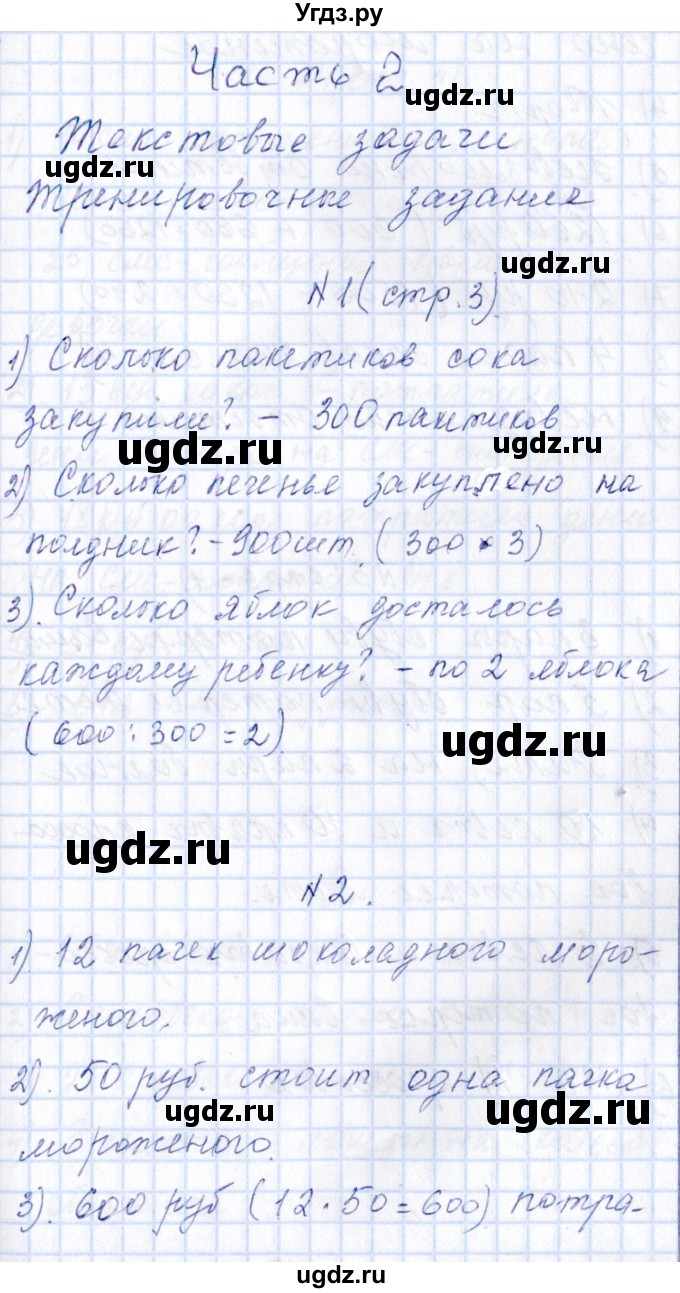 Угдз.ру
Часть 2
ugdz.ru
Текстовые задачи
ugdz.ru
Тренировочные задания
ugdz.ru
№1 (стр. 3).
1) Сколько пакетиков сока
закупили? – 300 пакетиков
ugdz.ru
ugdz.ru
2) Сколько печенье закуплено на
полдник? – 900 шт. (300 · 3)
3). Сколько яблок досталось
каждому ребенку? – по 2 яблока
(600 : 300 = 2).
ugdz.ru
ugdz.ru
№2.
1) 12 пачек шоколадного моро-
женого.
2). 50 руб. стоит одна пачка
ugdz.ru
ugdz.ru
мороженого.
3). 600 руб (12 · 50 = 600) потра-
ugdz.ru